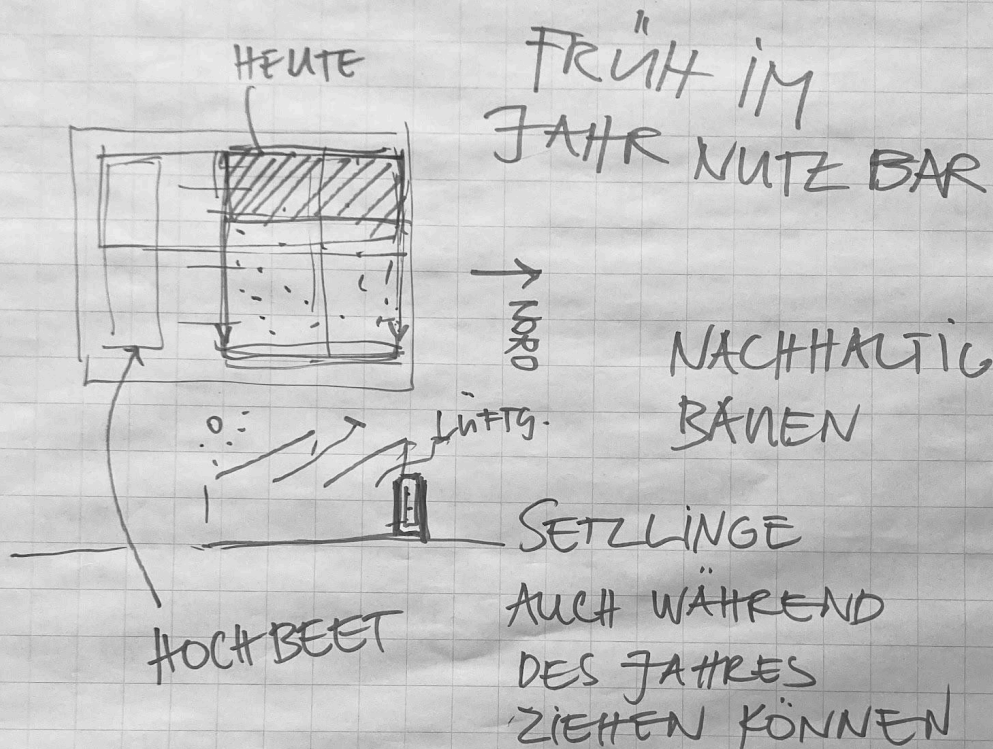 HEUTE
FRÜH IM
JAHR NUTZBAR
NORD
NACHHALTIG
BAUEN
LÜFTG.
SETZLINGE
AUCH WÄHREND
DES JAHRES
ZIEHEN KÖNNEN
HOCHBEET